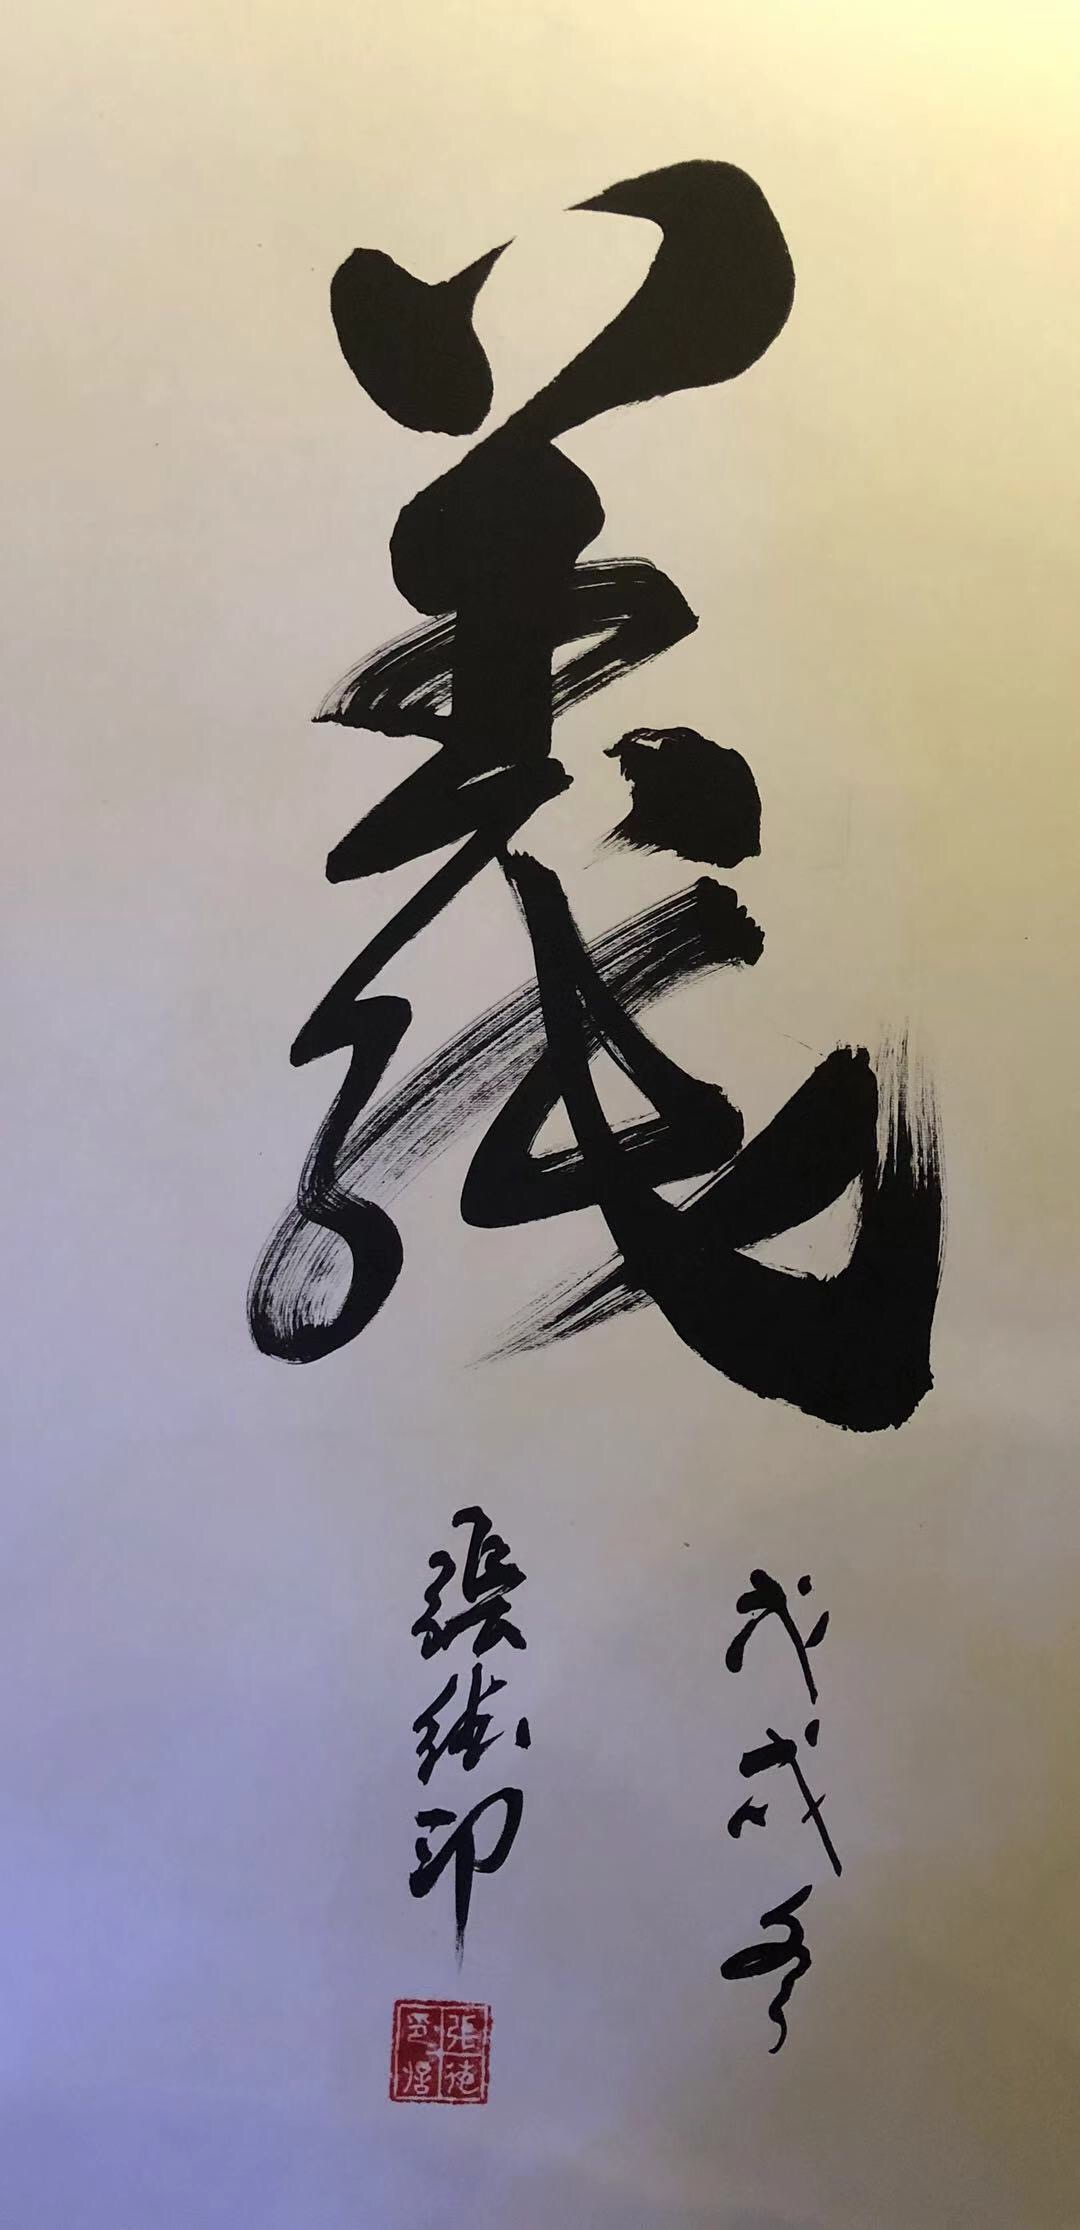 義
戊戌冬
張德印